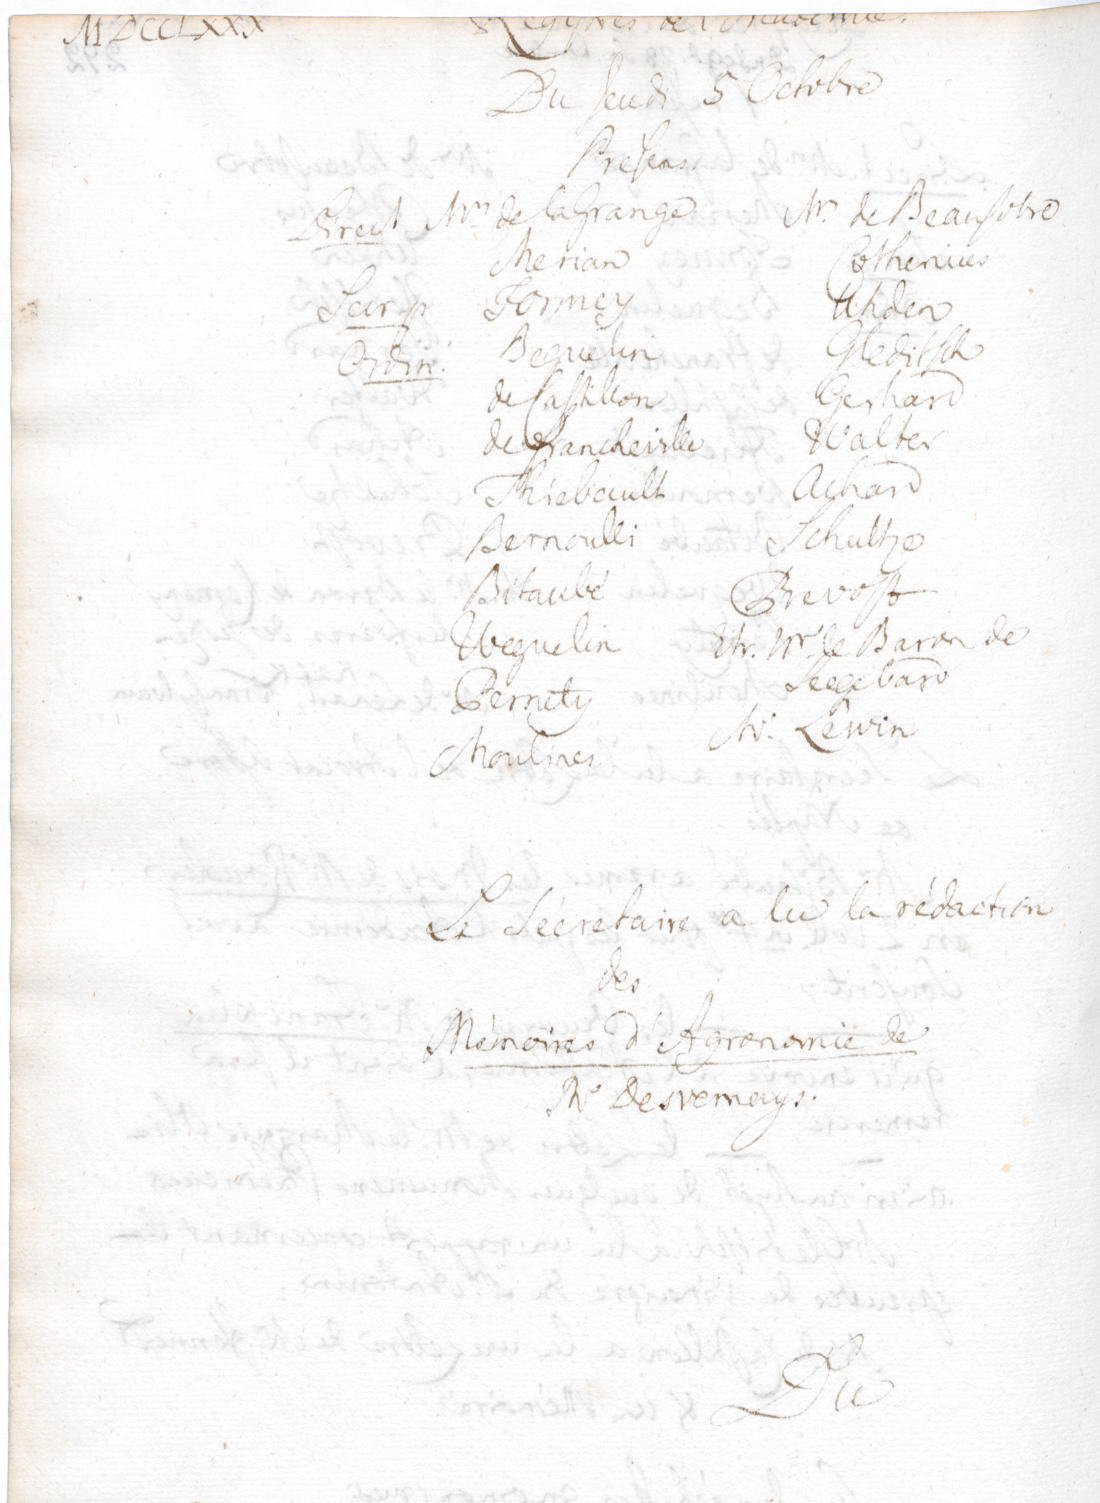 MDCCLXXX Regîtres de l'Academie.
Du Jeudi 5 Octobre
Presens
Direct Mrs de la Grange
Merian
Secr. p. Formey
Ordin. Beguelin
de Castillon
de Francheville
Thiebault
Bernoulli
Bitaubé
Weguelin
Pernety
Moulines
Mrs de Beausobre
Cothenius
Uhden
Gleditsch
Gerhard
Walter
Achard
Schultze
Prevost
Etr. Mr. le Baron de
Seegebard
Mr. Lewin
Le Sécretaire a lu la rédaction
des
Mémoires d'Agronomie de
Mr Desvernays.
Du